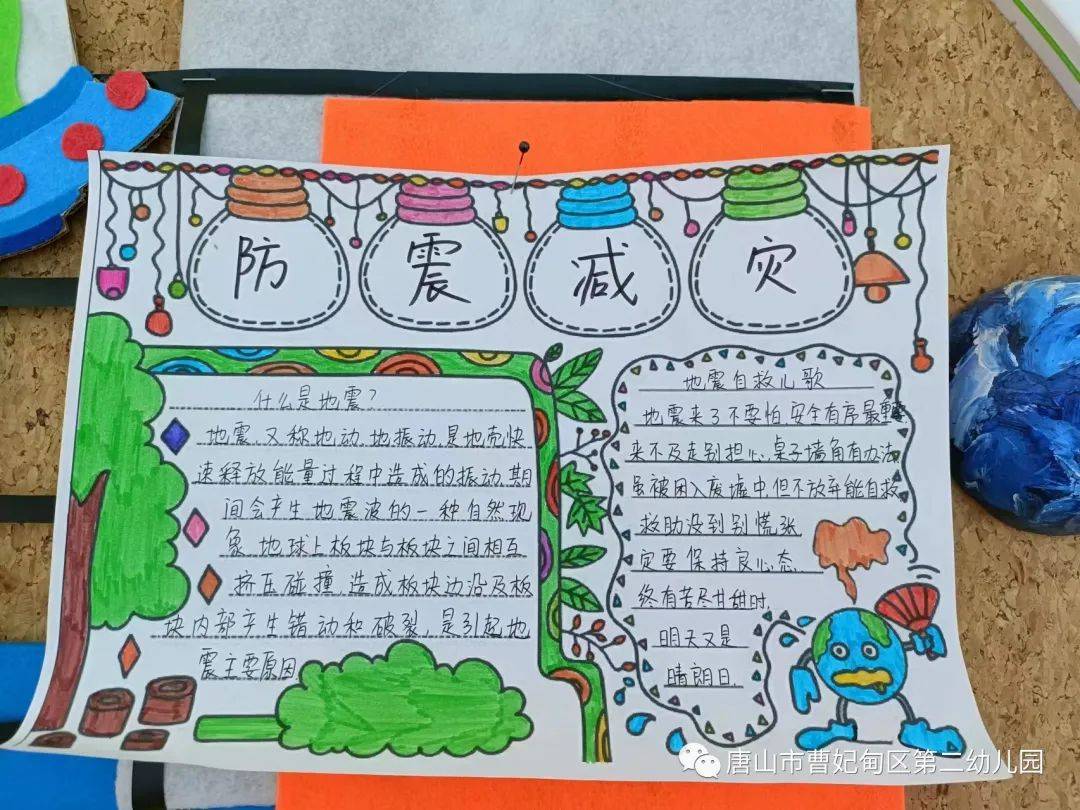 防震减灾
什么是地震?
地震,又称地动、地振动,是地壳快
速释放能量过程中造成的振动,期
间会产生地震波的一种自然现
象。地球上板块与板块之间相互
挤压碰撞,造成板块边沿及板
块内部产生错动和破裂,是引起地
震主要原因
地震自救儿歌
地震来了不要怕,安全有序最重要
来不及走别担心,桌子墙角有办法
虽被困入废墟中,但不放弃能自救
救助没到别慌张
定要保持良心态
终有苦尽甘甜时,
明天又是
晴朗日.
唐山市曹妃甸区第二幼儿园